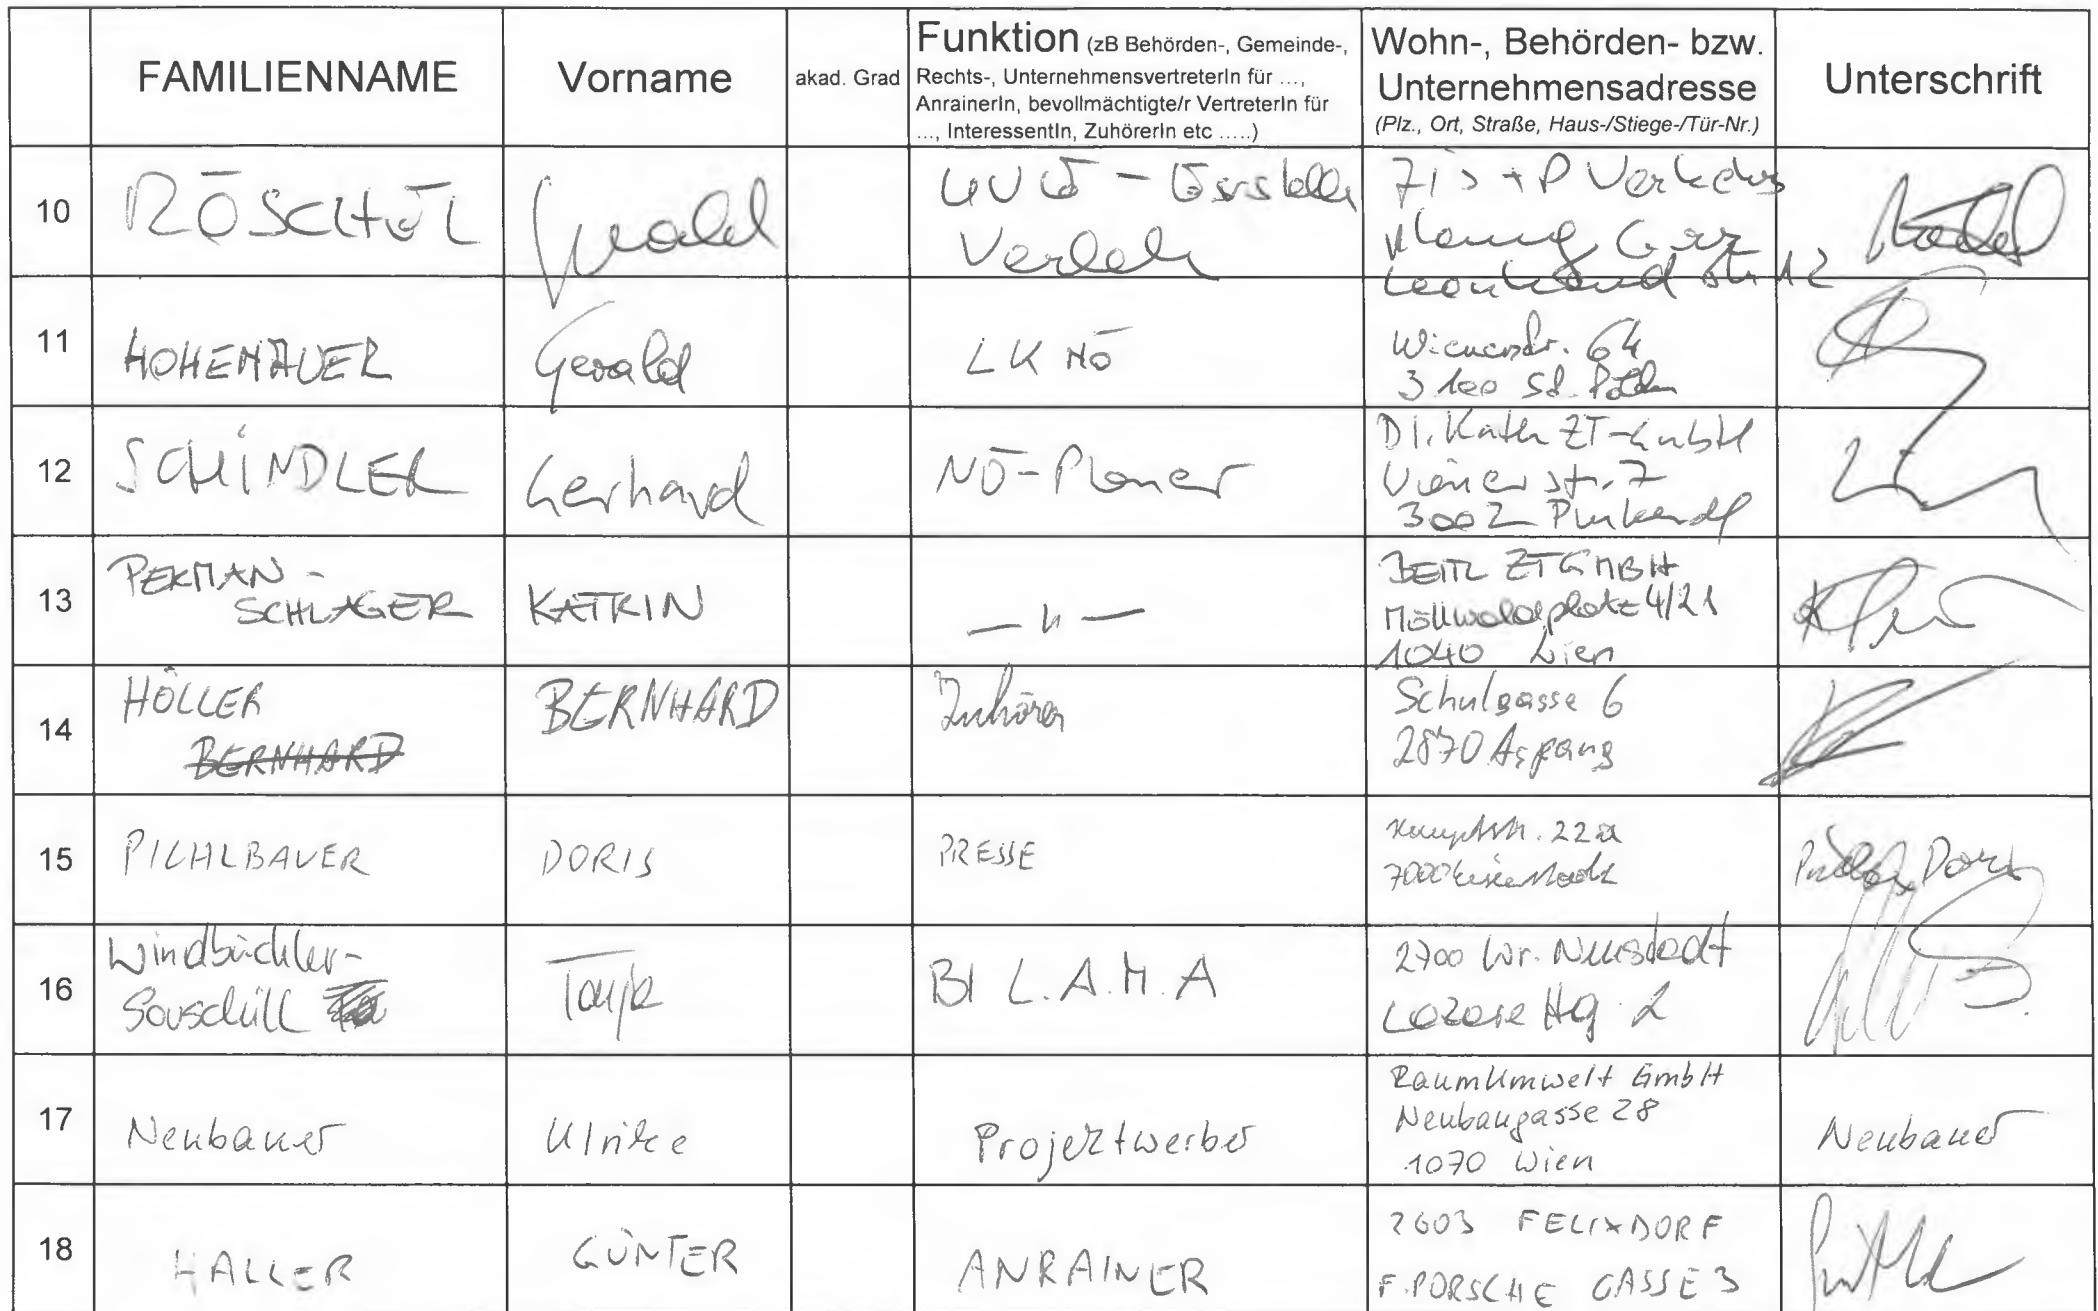 FAMILIENNAME
Vorname
akad. Grad
Funktion (zB Behörden-, Gemeinde-,
Rechts-, UnternehmensvertreterIn für ...,
AnrainerIn, bevollmächtigte/r VertreterIn für
..., InteressentIn, ZuhörerIn etc .....)
Wohn-, Behörden- bzw.
Unternehmensadresse
(Plz., Ort, Straße, Haus-/Stiege-/Tür-Nr.)
Unterschrift
10
RÖSCHEL
Gerald
Verkehr
+ P Verkehrs
planung Graz
Leonhardstr. 12
11
HOHENAUER
Gerald
LK NÖ
Wienerstr. 64
3100 St. Pölten
12
SCHINDLER
Gerhard
NÖ-Planer
DI. ZT-GmbH
Wienerstr. 7
3002 Purkersdf
13
PERMAN-
SCHLAGER
KATRIN
— " —
BEITL ZT GMBH
Möllwaldplatz 4/21
1040 Wien
14
HÖLLER
BERNHARD
BERNHARD
Zuhörer
Schulgasse 6
2870 Aspang
15
PICHLBAUER
DORIS
PRESSE
Hauptstr. 22a
7000 Eisenstadt
Doris
16
Windbüchler-
Souschill
Tanja
BI L.A.M.A
2700 Wr. Neustadt
2
17
Neubauer
Ulrike
Projektwerber
RaumUmwelt GmbH
Neubaugasse 28
1070 Wien
Neubauer
18
HALLER
GÜNTER
ANRAINER
2603 FELIXDORF
F. PORSCHE GASSE 3